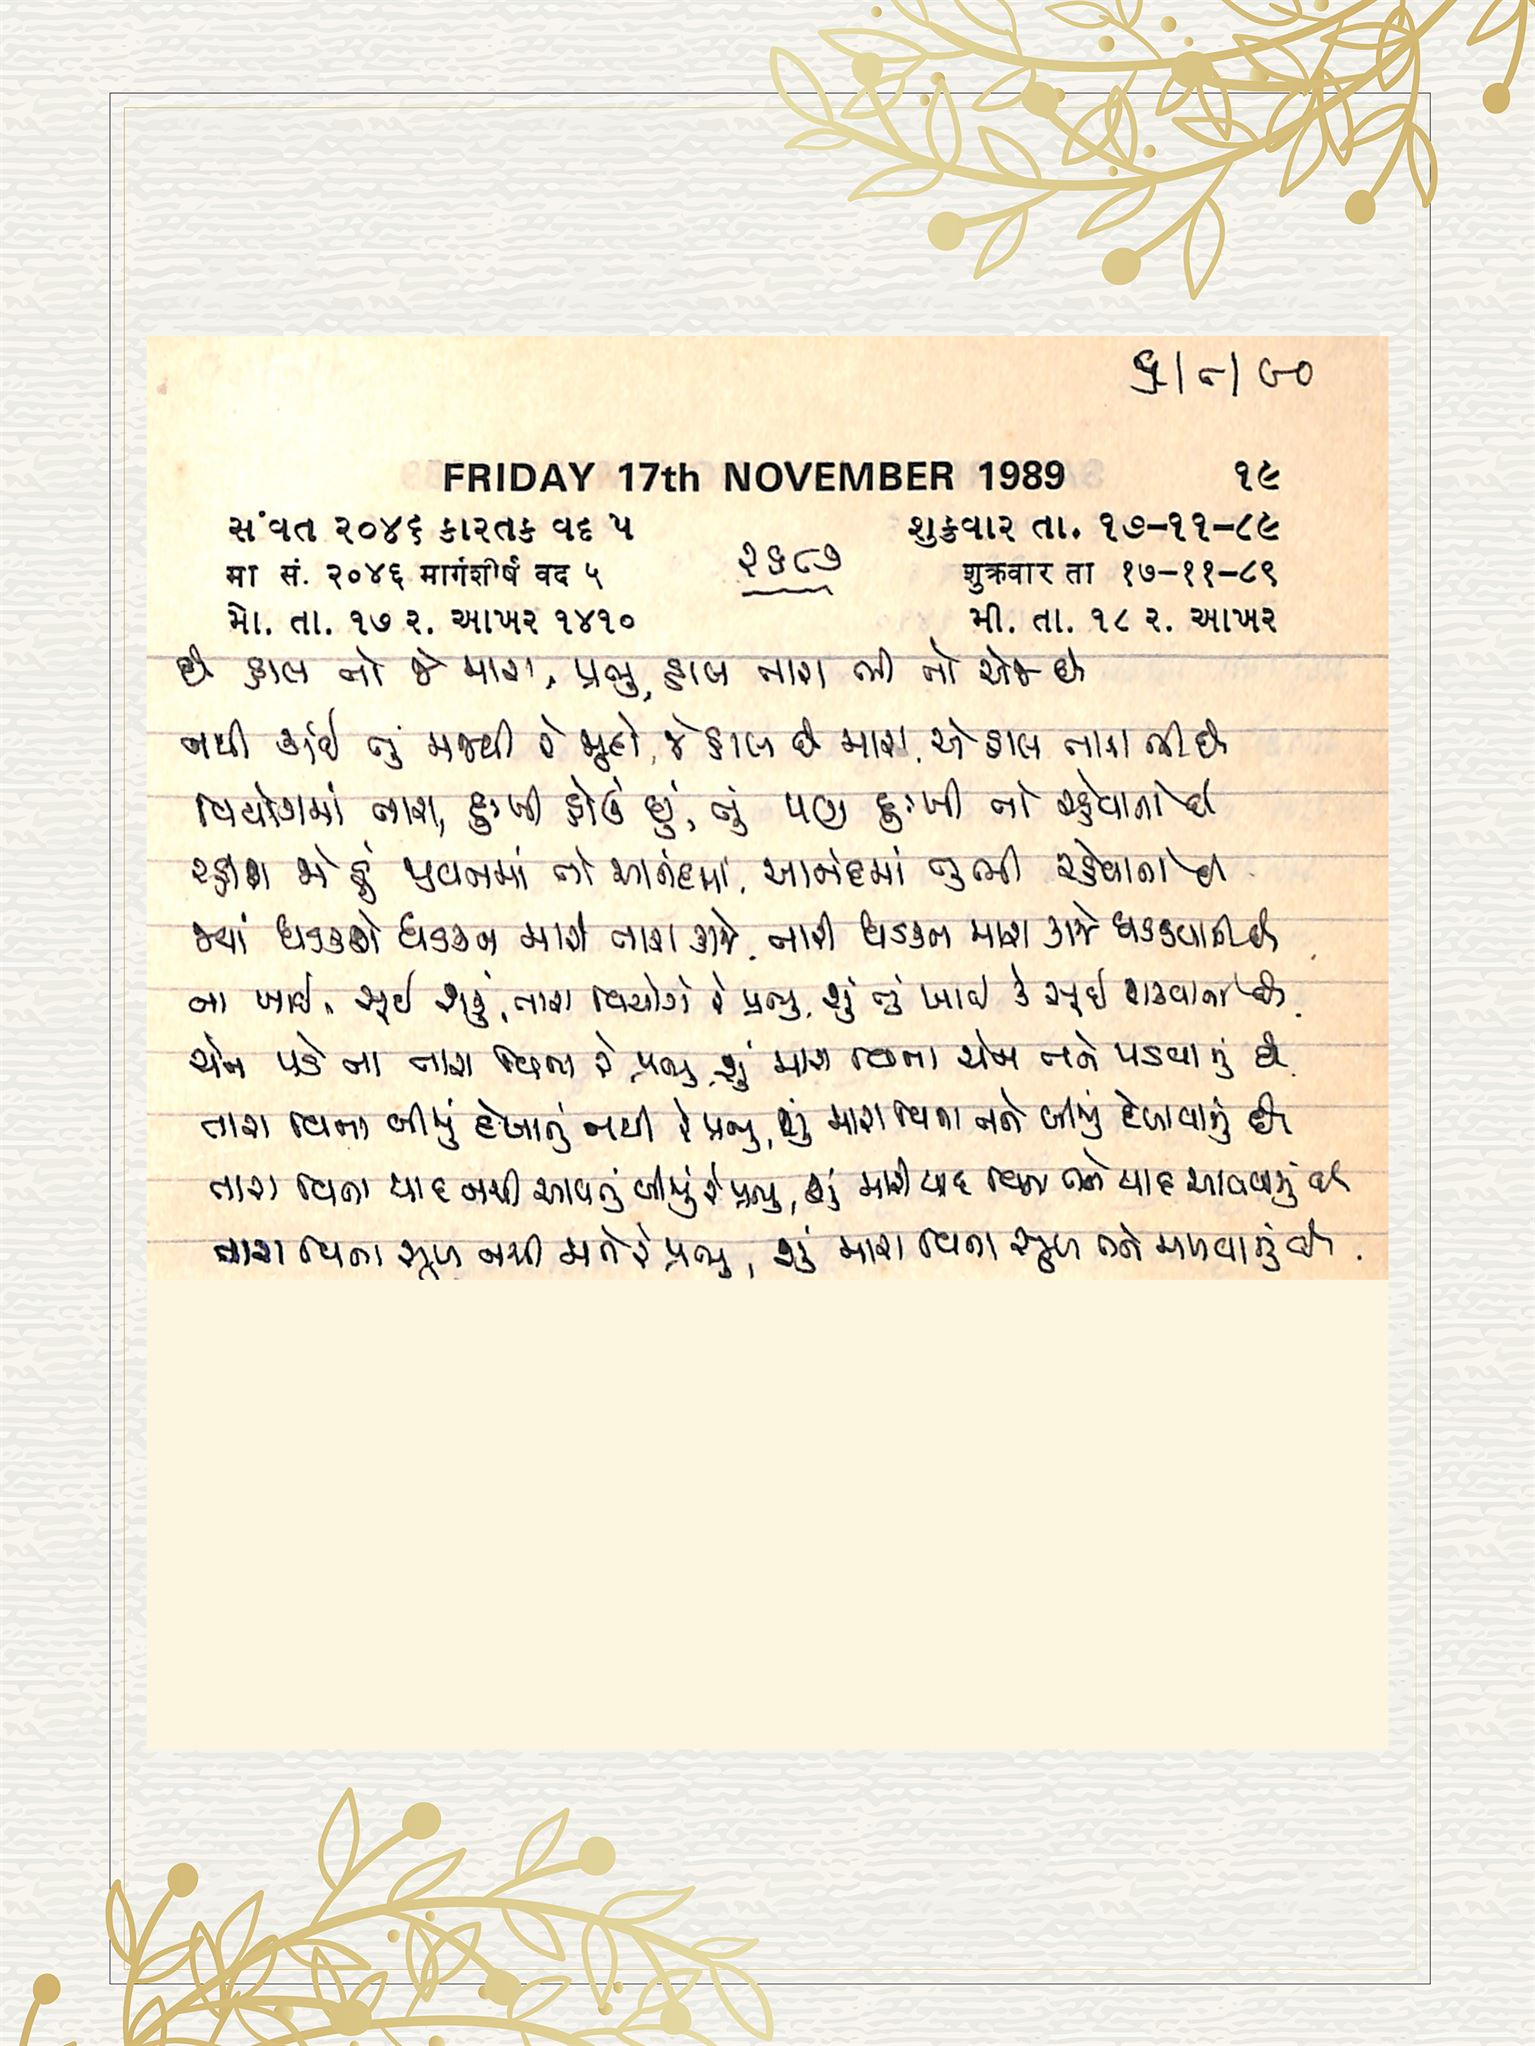 ૬/૮/૯૦
FRIDAY 17th NOVEMBER 1989 ૧૯
સંવત ૨૦૪૬ કારતક વદ ૫ શુક્રવાર તા. ૧૭-૧૧-૮૯
मा सं. २०४६ मार्गशीर्ष वद ५ शुक्रवार ता १७-११-८९
૨૬૮૭
મો. તા. ૧૭ ર. આખર ૧૪૧૦ મી. તા. ૧૮ ર. આખર
છે હાલ તો જે મારા, પ્રભુ, હાલ તારા ભી તો એજ છે
નથી કાંઈ તું મુજથી રે જુદો, જે હાલ છે મારા, એ હાલ તારા ભી છે
વિયોગમાં તારા, દુઃખી હોઉં છું, તું પણ દુઃખી તો રહેવાનો છે
રહીશ જો હું પુલનમાં તો આનંદમાં, આનંદમાં તુ ભી રહેવાનો છે
જ્યાં ધડકશે ધડકન મારી તારા કાજે, તારી ધડકન મારા કાજે ધડકવાની છે
ના ખાઈ, સૂઈ શકું, તારા વિયોગે રે પ્રભુ, શું તું ખાઈ કે સૂઈ શકવાનો છે
ચેન પડે ના તારા વિના રે પ્રભુ, શું મારા વિના ચેન તને પડવાનું છે
તારા વિના બીજું દેખાતું નથી રે પ્રભુ, શું મારા વિના તને બીજું દેખાવાનું છે
તારા વિના યાદ નથી આવતું બીજું રે પ્રભુ, શું મારી યાદ વિના તને યાદ આવવાનું છે
તારા વિના સુખ નથી મને રે પ્રભુ, શું મારા વિના સુખ તને મળવાનું છે